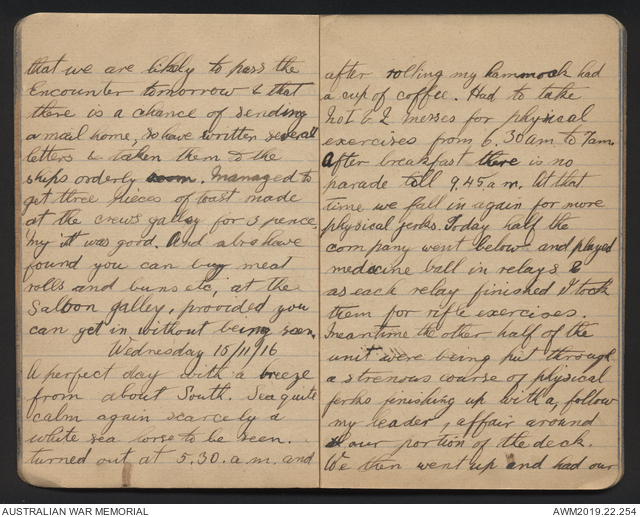 that we are likely to pass the
Encounter tomorrow & that
there is a chance of sending
a mail home, so have written several
letters & taken them to the
ships orderly room. Managed to
get three pieces of toast made
at the crews galley for 3 pence,
my it was good. And also have
found you can buy meat
rolls and buns etc, at the
Saloon galley, provided you
can get in without being seen.
Wednesday 15/11/16
A perfect day with a breeze
from about South. Sea quite
calm again scarcely a
white sea horse to be seen.
turned out at 5.30. a.m. and
after rolling my hammock had
a cup of coffee. Had to take
No1 & 2 messes for physical
exercises from 6.30am to 7am.
After breakfast there is no
parade till 9.45 a.m. At that
time we fall in again for more
physical jerks. Today half the
company went below and played
medicine ball in relays &
as each relay finished I took
them for rifle exercises.
Meantime the other half of the
unit were being put through
a strenous course of physical
jerks finishing up with a, follow
my leader, affair around
our portion of the deck.
We then went up and had our
AUSTRALIAN WAR MEMORIAL
AWM2019.22.254